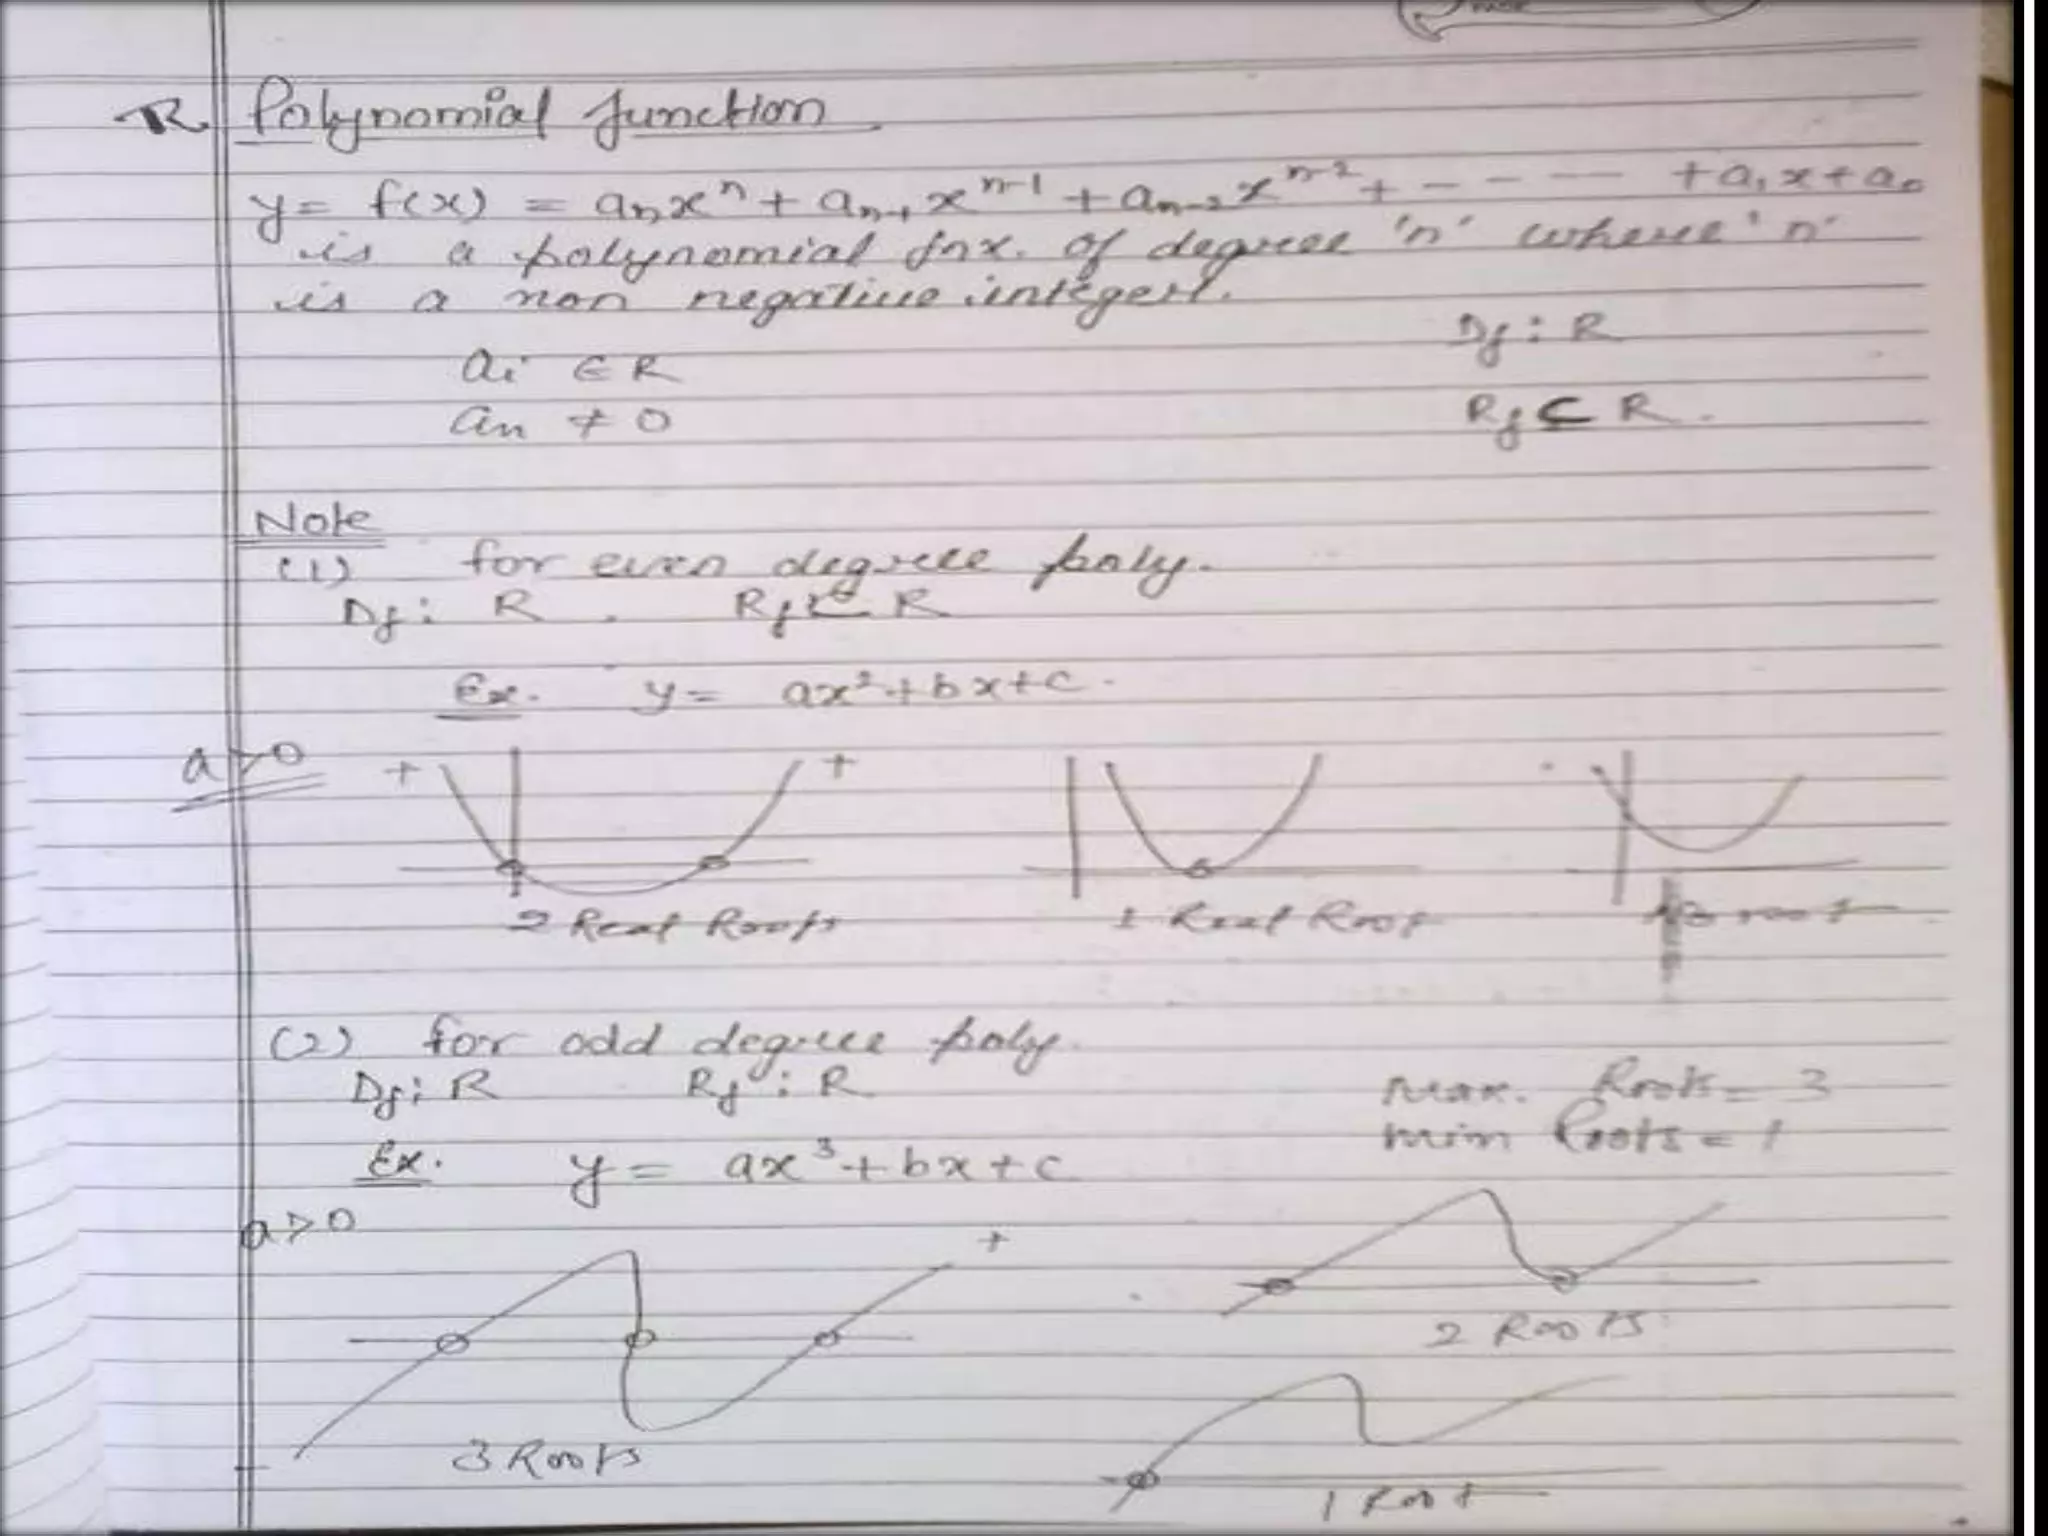 Polynomial function
y = f(x) = aₙxⁿ + aₙ₋₁xⁿ⁻¹ + aₙ₋₂xⁿ⁻² + - - - - + a₁x + a₀
is a polynomial fnx. of degree 'n' where 'n'
is a non negative integer.
Df : R
aᵢ ∈ R
Rf ⊂ R.
aₙ ≠ 0
Note
(1) for even degree poly.
Df : R. Rf ⊂ R
Ex. y = ax² + bx + c.
a>0 + +
2 Real Roots 1 Real Root root
(2) for odd degree poly.
Df : R Rf : R
max. Roots = 3
min Roots = 1
Ex. y = ax³ + bx + c
a>0
+
2 Roots
3 Roots
1 Root